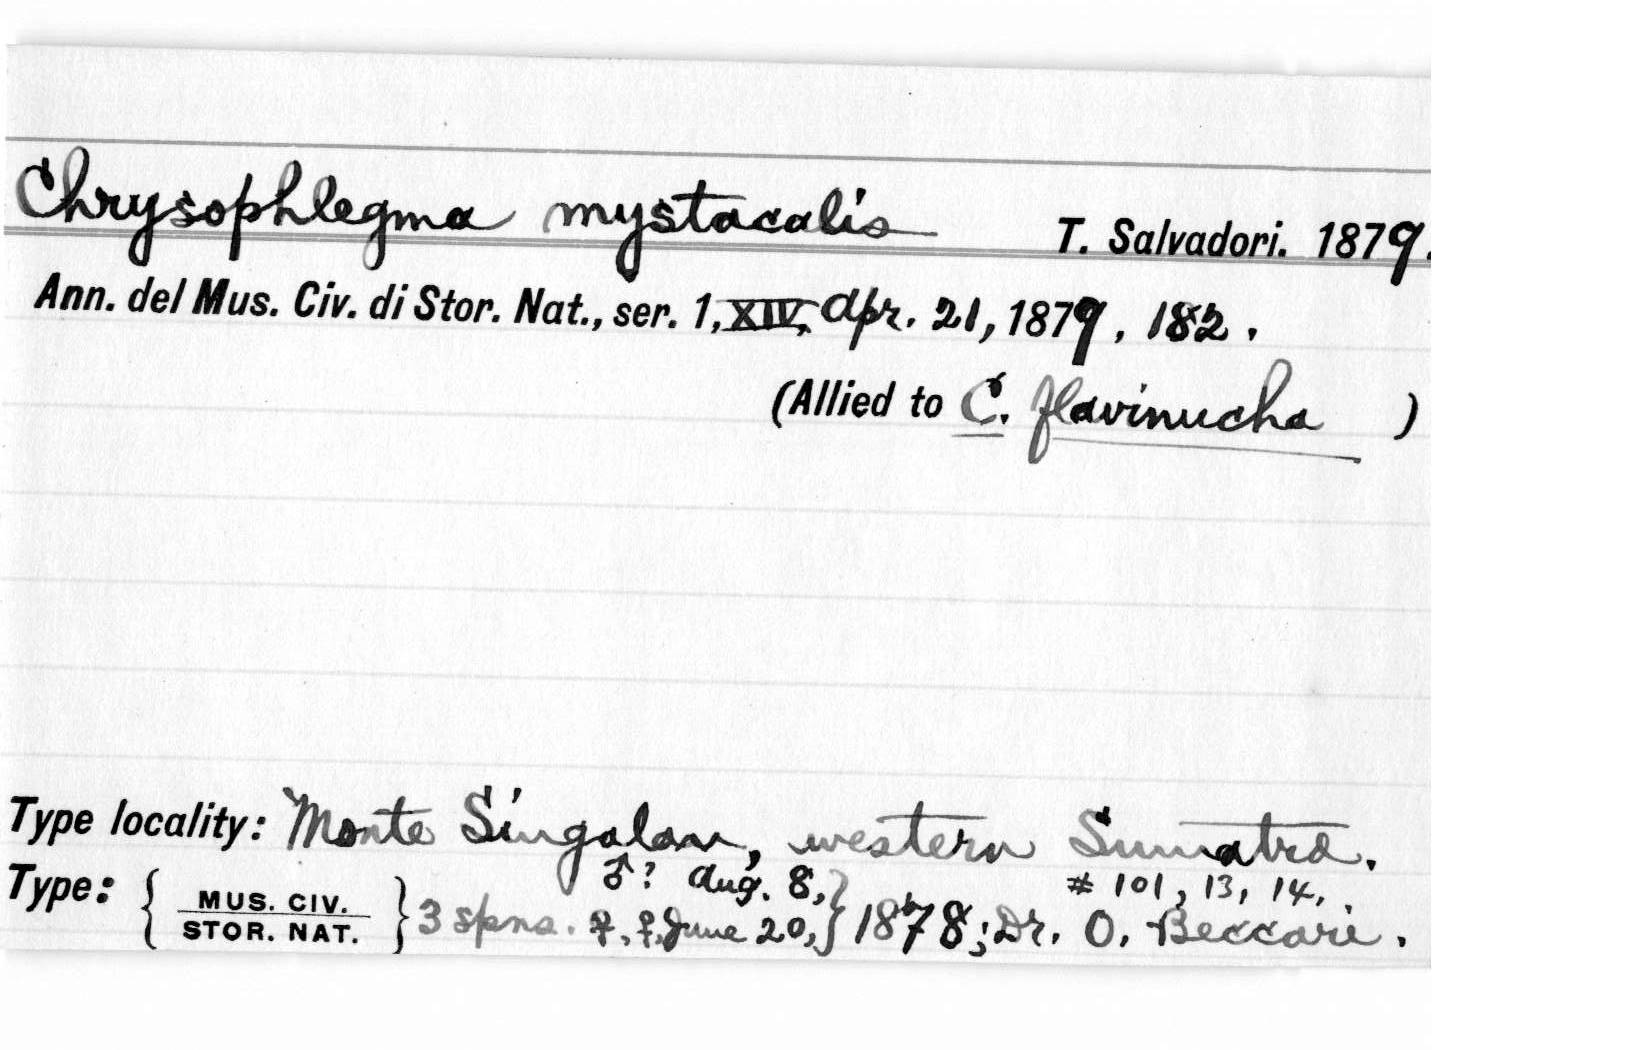 Chrysophlegma mystacalis T. Salvadori. 1879.
Ann. del Mus. Civ. di Stor. Nat., ser. 1, XIV, Apr. 21, 1879, 182.
(Allied to C. flavinucha )
Type locality: Monte Singalan, western Sumatra.
♂? Aug. 8,} # 101, 13, 14,.
Type: { MUS. CIV. STOR. NAT. } 3 spns. ♀, ♀, June 20,} 1878; Dr. O. Beccari.